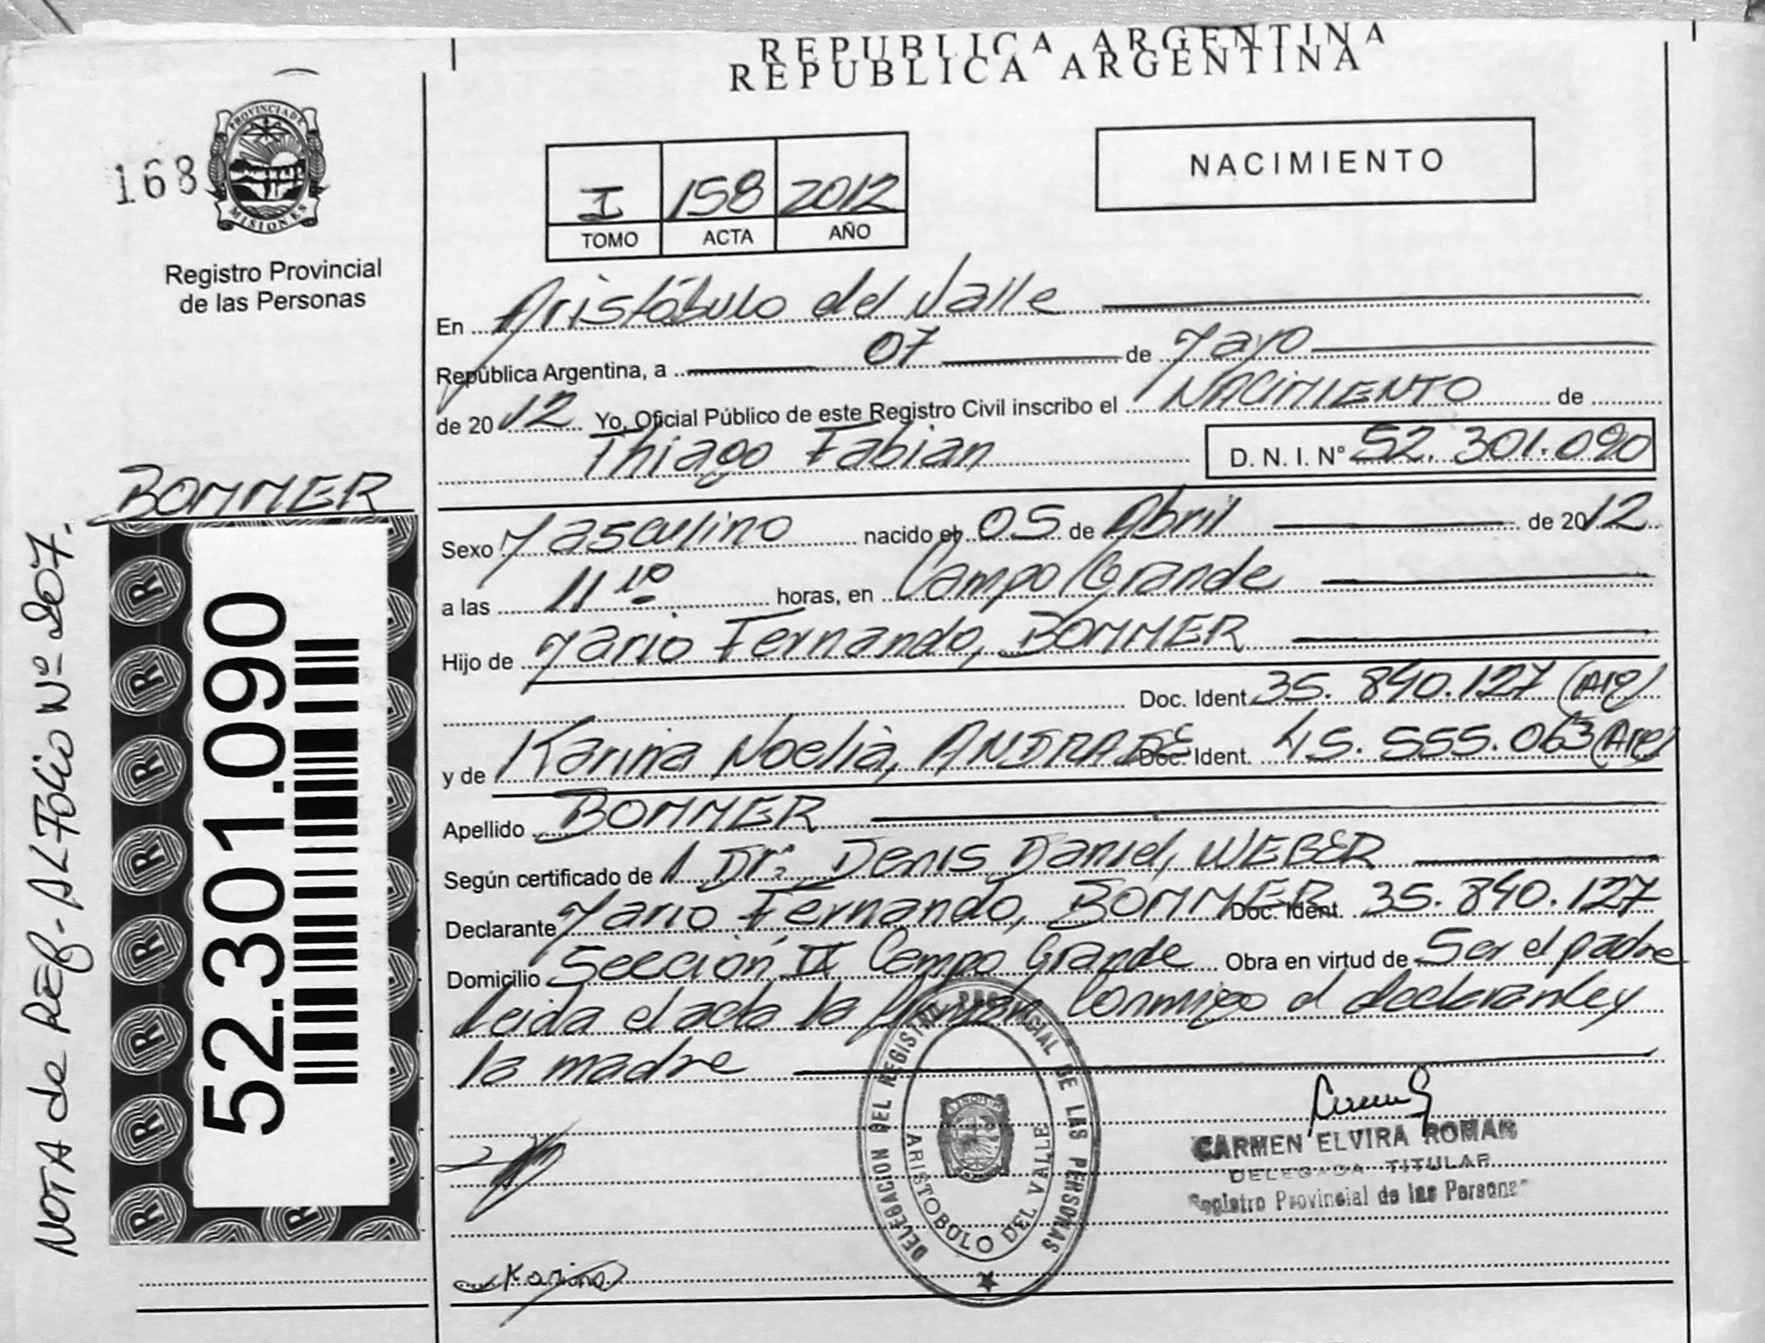 REPUBLICA ARGENTINA
REPUBLICA ARGENTINA
168
PROVINCIA DE
MISIONES
Registro Provincial
de las Personas
I 158 2012
TOMO ACTA AÑO
NACIMIENTO
En Aristóbulo del Valle
República Argentina, a 07 de Mayo
de 2012 Yo, Oficial Público de este Registro Civil inscribo el NACIMIENTO de
Thiago Fabian D. N. I. Nº 52.301.090
BOMMER
Sexo Masculino nacido el 05 de Abril de 2012
a las 11 10 horas, en Campo Grande
Hijo de Mario Fernando, BOMMER
Doc. Ident. 35.840.127 (Arg)
y de Karina Noelia, ANDRADE Doc. Ident. 45.555.063 (Arg)
Apellido BOMMER
Según certificado de 1 Dr. Denis Daniel, WEBER
Declarante Mario Fernando, BOMMER Doc. Ident. 35.840.127
Domicilio Sección IX Campo Grande Obra en virtud de Ser el padre
Leida el acta la firman Conmigo el declarante y
la madre
NOTA de REF - AL Folio Nº 207.
52.301.090
DELEGACION DEL REGISTRO PROVINCIAL DE LAS PERSONAS
ARISTOBULO DEL VALLE
CARMEN ELVIRA ROMAN
DELEGADA TITULAR
Registro Provincial de las Personas
Karina